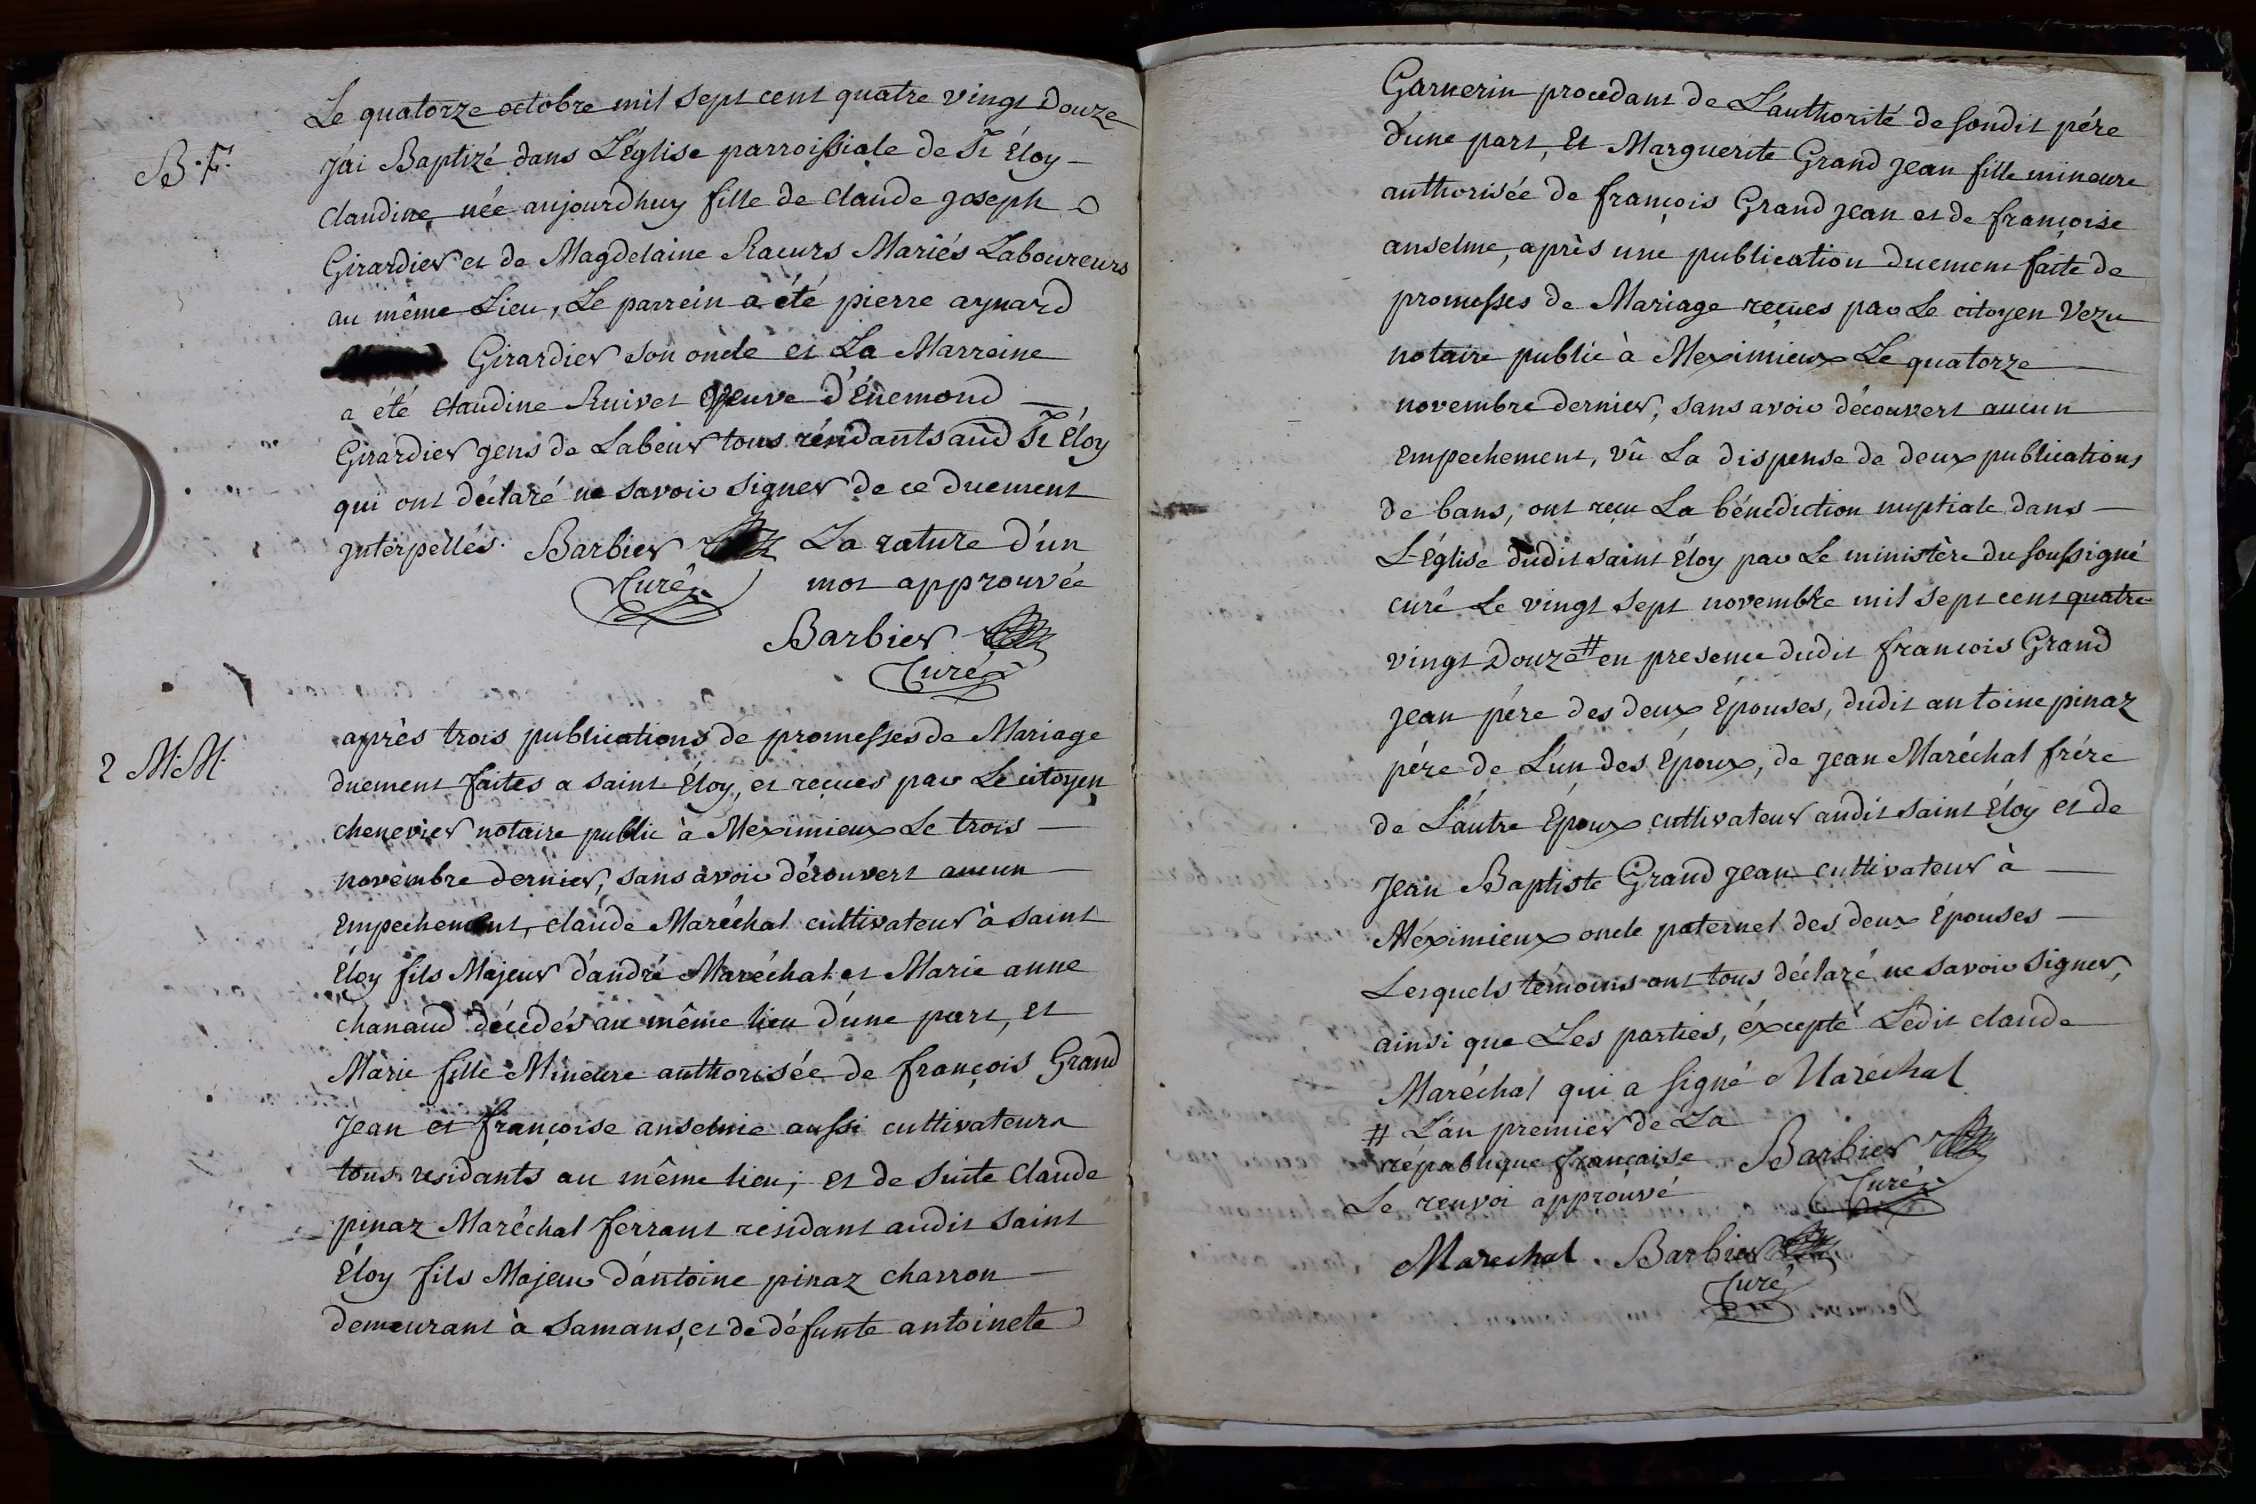 Le quatorze octobre mil sept cent quatre vingt Douze
B. F.
J'ai Baptizé dans L'Église parroissiale de St Éloy –
Claudine, née aujourdhuy fille de claude joseph
Girardier et de Magdelaine Racurs Mariés Laboureurs
au même Lieu, Le parrein a été pierre aynard
Girardier son oncle et La Marreine
a été claudine Ruivet veuve d'Énemond –
Girardier gens de Labeur tous résidants aud St Éloy
qui ont déclaré ne savoir signer de ce duement
jnterpellés. Barbier La rature d'un
Curé mot approuvée
Barbier
Curé
2 M. M.
après trois publications de promesses de Mariage
duement faites a saint Éloy, et reçues par Le citoyen
chenevier notaire public à Meximieux Le trois –
novembre dernier, sans avoir découvert aucun –
Empechement, claude Maréchal cultivateur à saint
Éloy fils Majeur d'andré Maréchal et Marie anne
chanaud décédés au même lieu d'une part, et
Marie fille Mineure authorisée de françois Grand
Jean et françoise anselme aussi cultivateurs
tous residants au même lieu; et de suite Claude
pinaz Maréchal ferrant residant audit saint
Éloy fils Majeur d'antoine pinaz charron –
demeurant à samans, et de défunte antoinete
Garnerin procedant de L'authorité de sondit pére
d'une part, Et Marguerite Grand Jean fille mineure
authorisée de françois Grand Jean et de françoise
anselme, après une publication duement faite de
promesses de Mariage reçues par Le citoyen Vezu
notaire public à Meximieux Le quatorze –
novembre dernier, sans avoir découvert aucun
empechement, vû La dispense de deux publications
de bans, ont reçu La bénédiction nuptiale dans –
L'église dudit saint Éloy par Le ministère du soussigné
curé Le vingt sept novembre mil sept cent quatre
vingt Douze # en presence dudit francois Grand
jean pére des deux Épouses, dudit antoine pinaz
pére de L'un des Époux, de jean Maréchal frére
de L'autre Époux cultivateur audit saint Éloy et de
Jean Baptiste Grand Jean cultivateur à –
Méximieux oncle paternel des deux Épouses –
Lesquels témoins ont tous déclaré ne savoir signer,
ainsi que Les parties, éxcepté Ledit claude
Maréchal qui a signé Maréchal
# L'an premier de La
république française Barbier
Le renvoi approuvé Curé
Marechal . Barbier
Curé